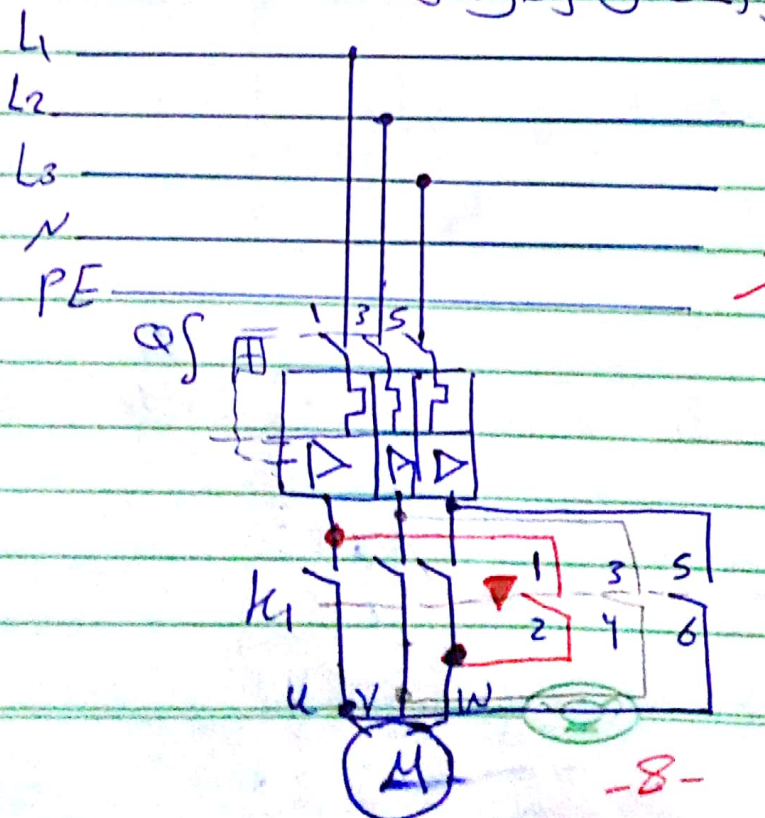 L1
L2
L3
N
PE
1 3 5
K1
1 3 5
2 4 6
U V W
M
-8-